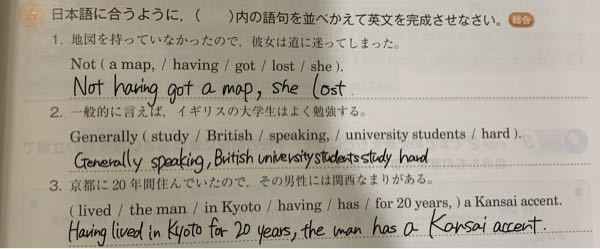 日本語に合うように，( )内の語句を並べかえて英文を完成させなさい。 総合
1. 地図を持っていなかったので，彼女は道に迷ってしまった。
Not ( a map, / having / got / lost / she ).
Not having got a map, she lost.
2. 一般的に言えば，イギリスの大学生はよく勉強する。
Generally ( study / British / speaking, / university students / hard ).
Generally speaking, British university students study hard
3. 京都に 20 年間住んでいたので，その男性には関西なまりがある。
( lived / the man / in Kyoto / having / has / for 20 years, ) a Kansai accent.
Having lived in Kyoto for 20 years, the man has a Kansai accent.